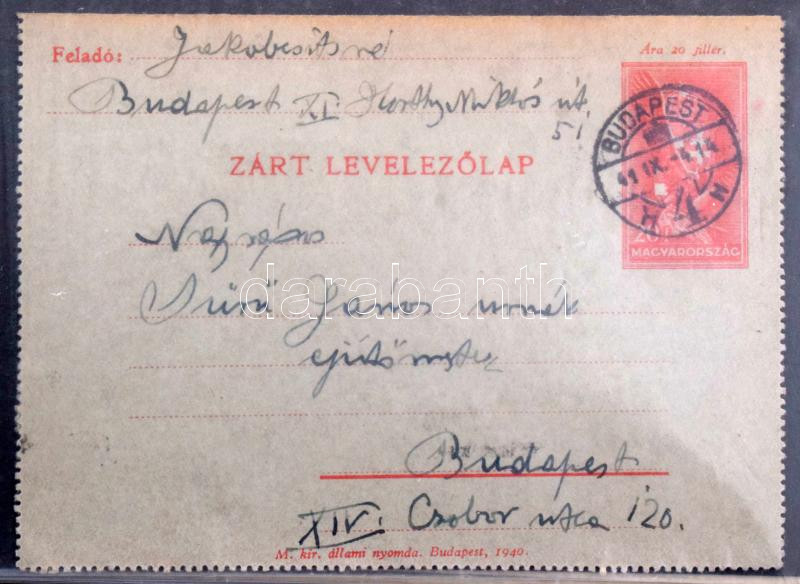 Feladó: Jakobcsitsné
Ára 20 fillér.
Budapest XI. Horthy Miklós út
51
BUDAPEST
41 IX. -4. 14
4
ZÁRT LEVELEZŐLAP
20
MAGYARORSZÁG
Sűrű János urnak
darabanth
Budapest
XIV. Czobor utca 120.
M. kir. állami nyomda. Budapest, 1940.